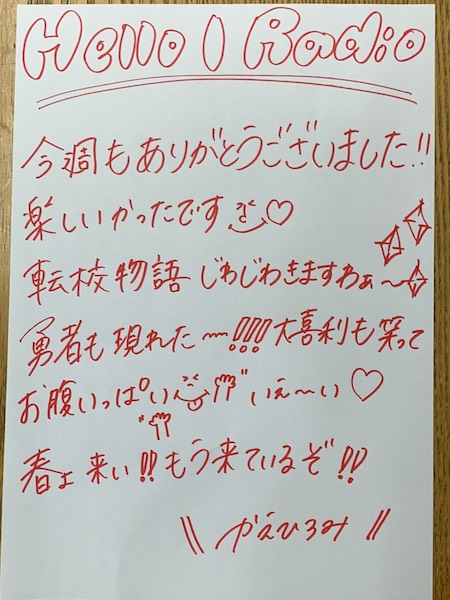 Hello! Radio
今週もありがとうございました!!
楽しいかったです♡
転校物語 じわじわきますわぁ〜
勇者も現れた〜!!!! 大喜利も笑って
お腹いっぱい いぇ〜い♡
春よ来い!! もう来ているぞ!!
\\ かえひろみ //